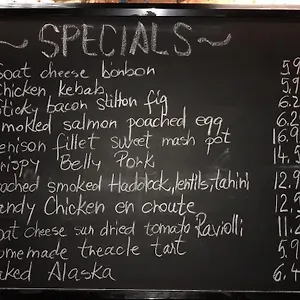 ~ SPECIALS ~
oat cheese bonbon 5.9
Chicken kebab 5.9
Sticky bacon stilton fig 6.2
mokled salmon poached egg 6.2
enison fillet sweet mash pot 16.9
rispy Belly Pork 14.5
oached smoked Haddock, lentils, tahini 12.9
andy Chicken en croute 12.9
oat cheese sun dried tomato Raviolli 11.2
omemade treacle tart 5.9
aked Alaska 6.4